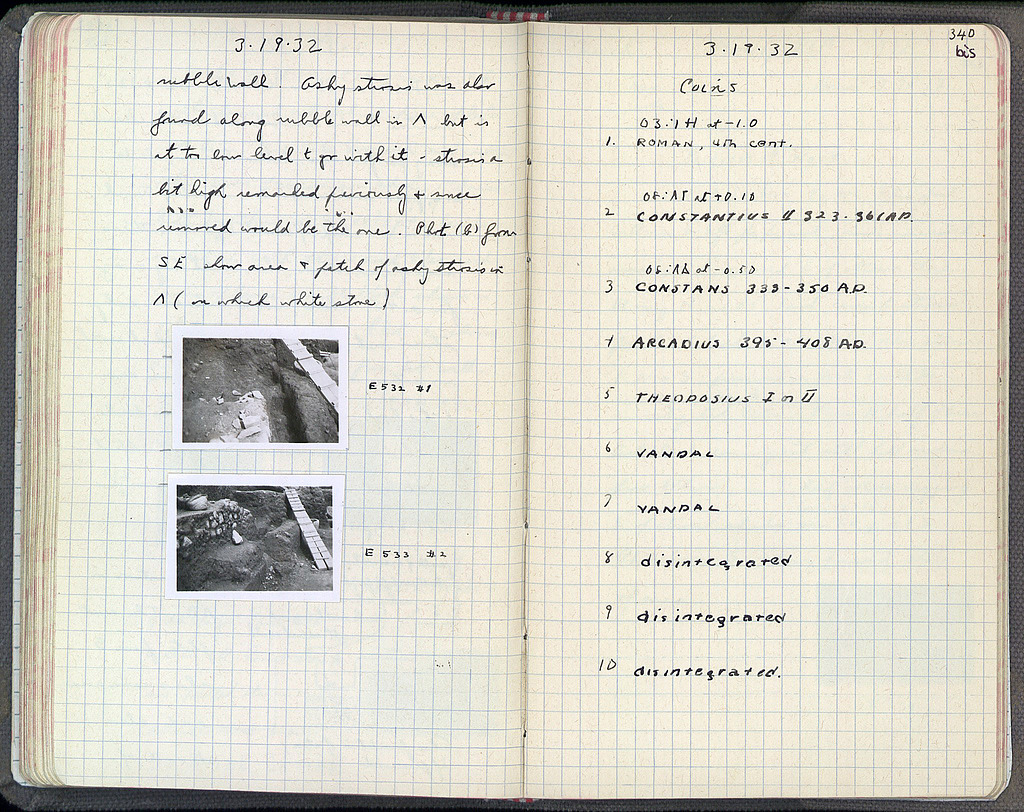 3·19·32
rubble wall. Ashy strosis was also
found along rubble wall in Λ but is
at too low level to go with it - strosis a
bit high remarked previously & since
removed would be the one. Phot (b) from
SE show area & patch of ashy strosis in
Λ (on which white stone)
E 532 #1
E 533 #2
340
bis
3·19·32
Coins
at -1.0
1. ROMAN, 4th cent.
at +0.10
2 CONSTANTIUS II 323-361 A.D.
at -0.50
3 CONSTANS 333-350 A.D.
4 ARCADIUS 395-408 A.D.
5 THEODOSIUS I or II
6 VANDAL
7 VANDAL
8 disintegrated
9 disintegrated
10 disintegrated.